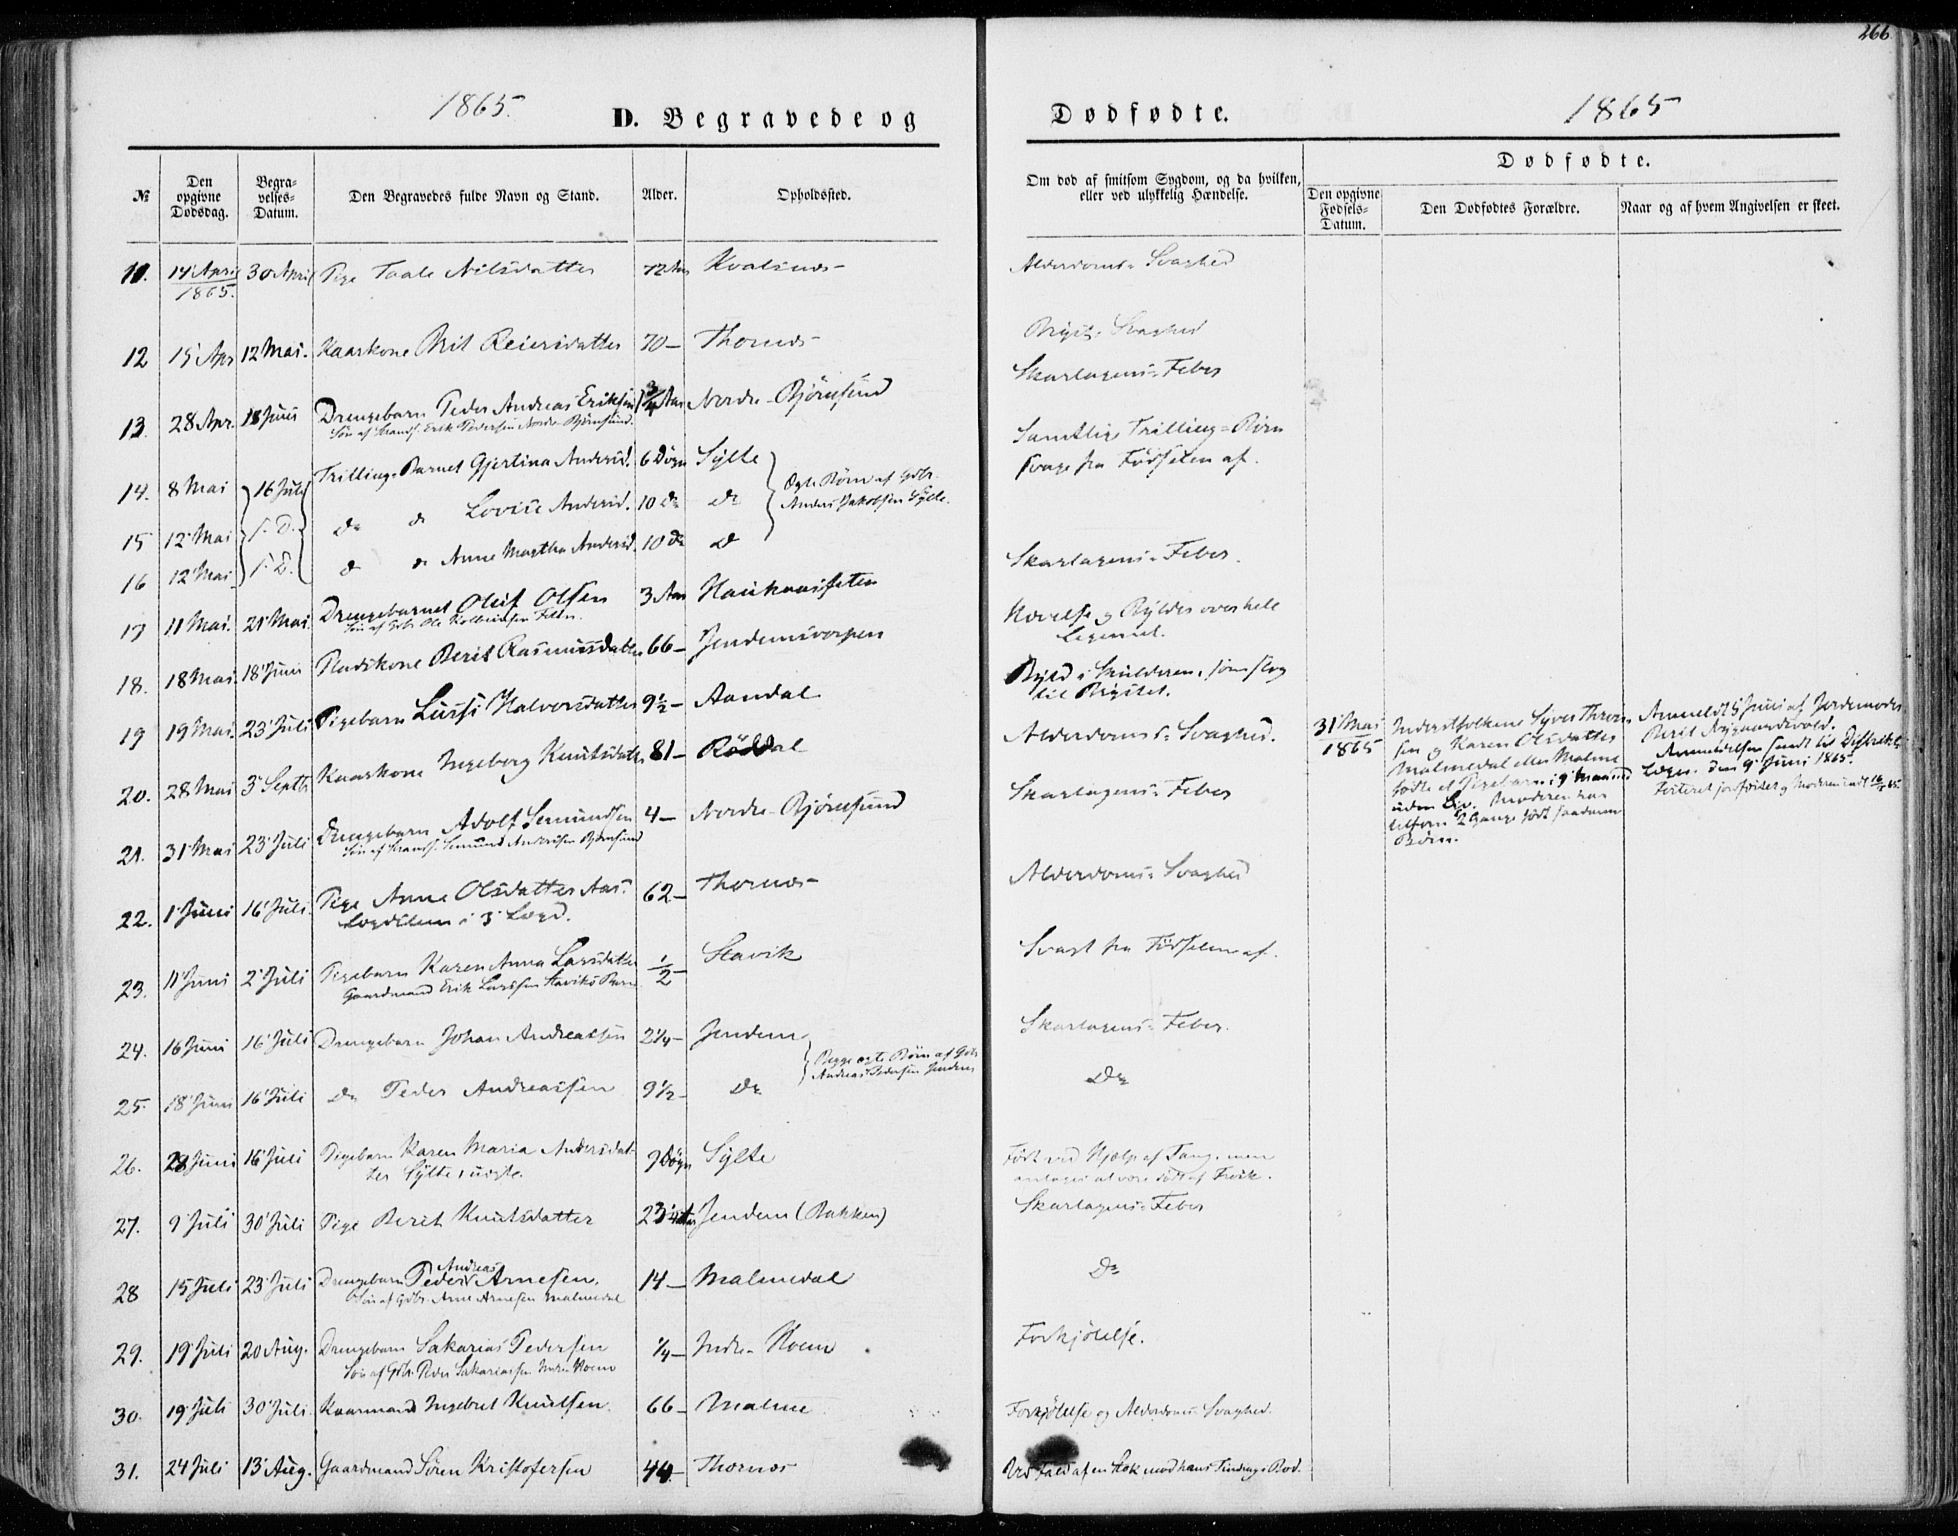 266
1865.
D. Begravede og
Dødfødte.
1865
№
Den opgivne Dødsdag.
Begra-velses-Datum.
Den Begravedes fulde Navn og Stand.
Alder.
Opholdssted.
Om død af smitsom Sygdom, og da hvilken, eller ved ulykkelig Hændelse.
Dødfødte.
Den opgivne Fødsels-Datum.
Den Dødfødtes Forældre.
Naar og af hvem Angivelsen er skeet.
11. 14 April 1865. 30 April Pige Nilsdatter 72 Aar Kvalsnes Alderdoms-Svaghed
12 15 Apr 12 Mai. Kaarkone Brit Reiersdatter 70 – Thornæs Bryst-Svaghed
13. 28 Apr. 18 Juni Drengebarn Peder Andreas Eriksen 1 3/4 Aar Nordre-Bjørnsund Skarlagens-Feber
Søn af Strands. Erik Pedersen Nordre-Bjørnsund.
14. 8 Mai 16 Juli Trillinge-Barnet Gjertina Andersd. 6 Døgn Sylte Samtlige Trilling-Børn svage fra Fødselen af.
15 12 Mai s. D. Do do Lovise Andersd. 10 Do Do
Ægte Børn af Gdbr. Anders Jakobsen Sylte.
16 12 Mai s. D. do do Anne Martha Andersd. 10 Do Do
17 11 Mai. 21 Mai. Drengebarnet Oluf Olsen 3 Aar Haukaassæten Skarlagens-Feber.
Søn af Gdbr. Ole
18. 18 Mai. 18 Juni Pladskone Berit Rasmusdatter 66 – Jendemsvorpen Hævelse og Bylder over hele Legemet.
19 19 Mai. 23 Juli Pigebarn Lussi Halvorsdatter 9½ – Aandal Byld i Skulderen, som slog til Brystet.
20. 28 Mai 3 Septb. Kaarkone Ingeborg Knutsdatter 81 – Røddal Alderdoms-Svaghed.
31 Mai 1865
Inderstfolkene Syver Thorsen og Karen Olsdatter Malmedal eller Malme fødte et Pigebarn i 9 Maaned uden Liv. Moderen har tilforn 2 Gange født saadanne Børn.
Anmeldt 5 Juni af Jordemoder Berit Nygaardsvold. Anmeldelsen sendt til Distrikts-Lægen den 9 Juni 1865.
21. 31 Mai 23 Juli Drengebarn Adolf Semundsen 4 – Nordre-Bjørnsund Skarlagens-Feber
Søn af Strands. Semund Andersen Bjørnsund
22. 1 Juni 16 Juli. Pige Anne Olsdatter Aas. 62 – Thornæs Alderdoms-Svaghed
Lægdslem i 3 Lægd.
23. 11 Juni 2 Juli Pigebarn Karen Anna Larsdatter ½ – Stavik Svagt fra Fødselen af.
Gaardmand Erik Larssen Staviks Barn
24. 16 Juni 16 Juli Drengebarn Johan Andreassen 2¼ – Jendem Skarlagens-Feber.
Begge ægte Børn af Gdbr. Andreas Pedersen Jendem
25. 18 Juni 16 Juli Do Peder Andreassen 9½ – Do Do
26. 28 Juni 16 Juli Pigebarn Karen Maria Andersdatter Sylte, uægte. 9 Døgn Sylte Født ved Hjælp af Tang, men antages at være død af Trøsk.
27. 9 Juli 30 Juli Pige Berit Knutsdatter 23¼ Aar Jendem (Bakken) Skarlagens-Feber
28 15 Juli 23 Juli Drengebarn Peder Andreas Arnesen. 14 – Malmedal Do
Søn af Gdbr. Arne Arnesen Malmedal
29. 19 Juli 20 Aug. Drengebarn Sakarias Pedersen ¼ – Indre-Hoem Forkjølelse.
Søn af Gdbr. Peder Sakariassen Indre Hoem
30. 19 Juli 30 Juli. Kaarmand Ingebret Knutsen. 66 – Malme Forkjølelse og Alderdoms-Svaghed.
31. 24 Juli 13 Aug. Gaardmand Søren Kristofersen 44 – Thornæs Ved Fald af en Stok mod hans Tinding